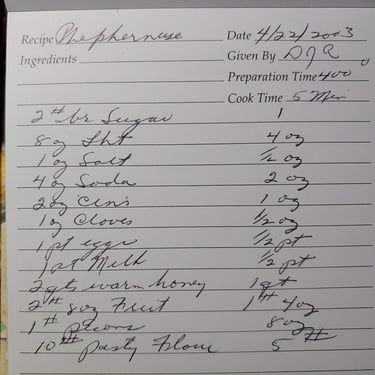 Recipe Phephernuse Date 4/22/2003
Ingredients Given By DJR
Preparation Time 400
Cook Time 5 Min
2# br Sugar 1
8 oz Sht 4 oz
1 oz Salt ½ oz
4 oz Soda 2 oz
2 oz Cin's 1 oz
1 oz Cloves ½ oz
1 pt eggs ½ pt
1 pt Milk ½ pt
2 qts warm honey 1 qt
2# 8 oz Fruit 1# 4 oz
1# pecans 8 oz
10# pastry Flour 5#